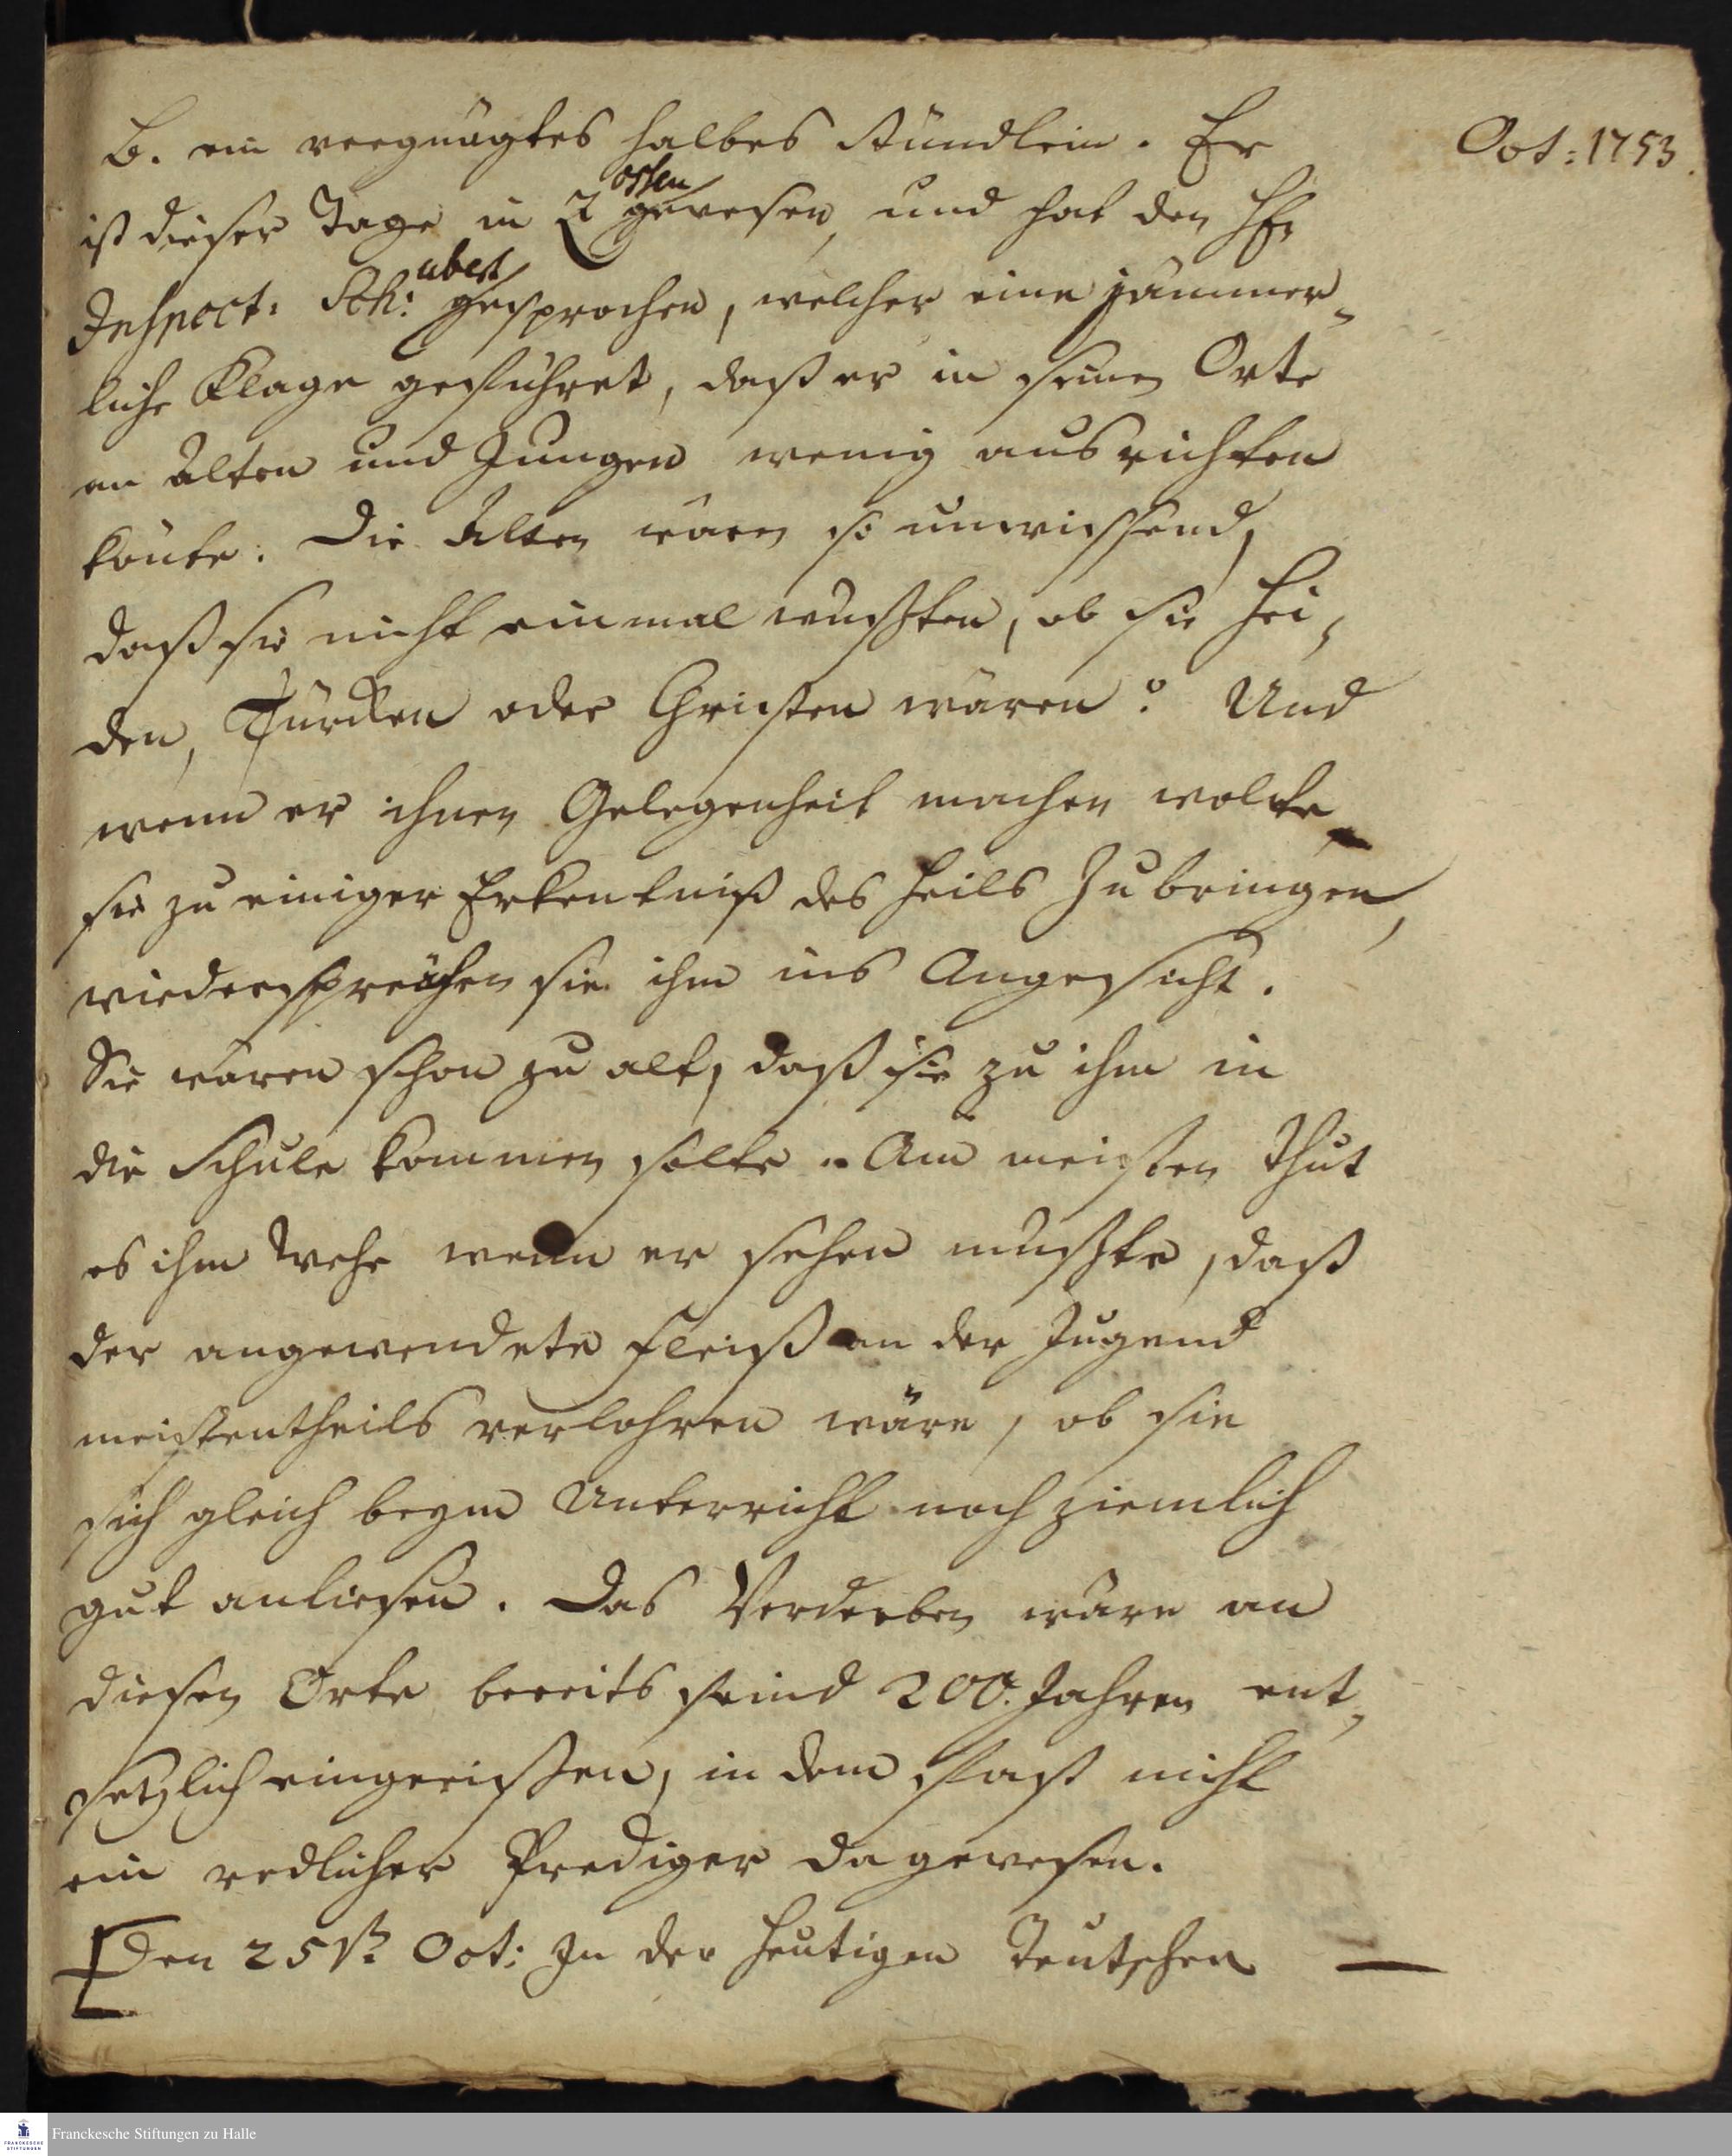 Oct: 1753.
B. ein vergnügtes halbes Stündlein. Er
ossen
ist dieser Tage in Z gewesen, und hat den H.
ubert
Inspect: Sch: gesprochen, welcher eine jämmer-
liche Klage geführet, daß er in seinen Orte
an Alten und Jungen wenig ausrichten
könte. Die Alten wären so unwissend,
daß sie nicht einmal wußten, ob sie Hei-
den, Türcken oder Christen wären? Und
wenn er ihnen Gelegenheit machen wolte
sie zu einiger Erkentniß des Heils zu bringen,
wiedersprächen sie ihm ins Angesicht.
Sie wären schon zu alt, daß sie zu ihm in
die Schule kommen solte. Am meisten thut
es ihm wehe wenn er sehen müßte, daß
der angewendete Fleiß an der Jugend
meistentheils verlohren wäre, ob sie
sich gleich beym Unterricht noch ziemlich
gut anliesen. Das Verderben wäre an
diesen Orte bereits seind 200. Jahren ent-
setzlich eingerißen, in dem fast nicht
ein redlicher Prediger da gewesen.
[Den 25st. Oct: In der heutigen Teutschen —
FRANCKESCHE STIFTUNGEN
Franckesche Stiftungen zu Halle